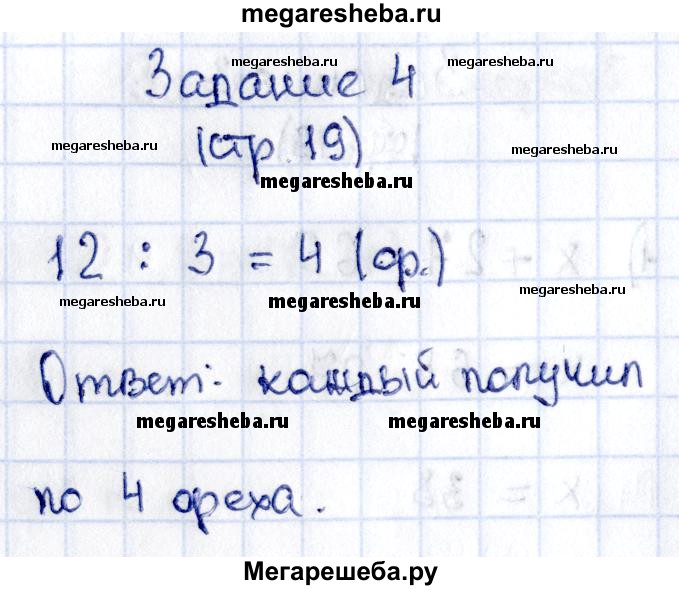 megaresheba.ru
megaresheba.ru megaresheba.ru
Задание 4
megaresheba.ru (стр. 19) megaresheba.ru
megaresheba.ru
12 : 3 = 4 (ор.)
megaresheba.ru megaresheba.ru megaresheba.ru
Ответ: каждый получил
megaresheba.ru megaresheba.ru
по 4 ореха.
Мегарешеба.ру